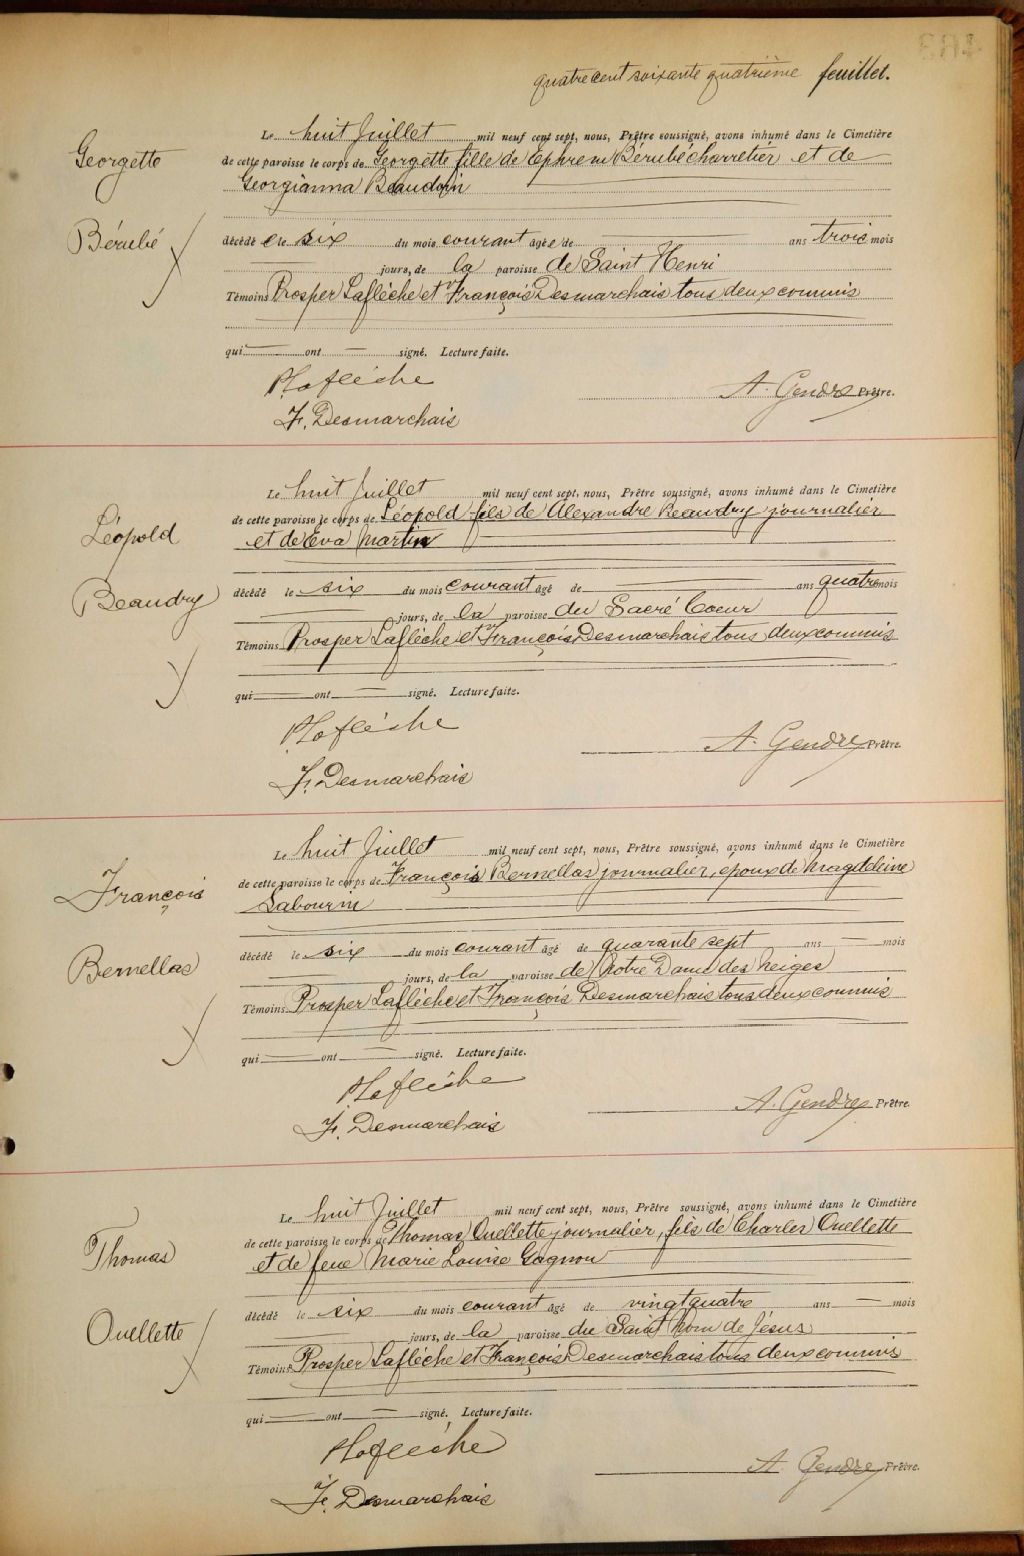 quatre cent soixante quatrième feuillet.
Georgette
Bérubé
Le huit Juillet mil neuf cent sept, nous, Prêtre soussigné, avons inhumé dans le Cimetière
de cette paroisse le corps de Georgette fille de Ephrem Bérubé charretier et de
Georgianna Beaudoin
décédé e le six du mois courant âgé e de ans trois mois
jours, de la paroisse de Saint Henri
Témoins Prosper Laflèche et François Desmarchais tous deux commis
qui ont signé. Lecture faite.
P Laflèche
A. Gendre Prêtre.
F. Desmarchais
Léopold
Beaudry
Le huit Juillet mil neuf cent sept, nous, Prêtre soussigné, avons inhumé dans le Cimetière
de cette paroisse le corps de Léopold fils de Alexandre Beaudry journalier
et de Eva Martin
décédé le six du mois courant âgé de ans quatre mois
jours, de la paroisse du Sacré Coeur
Témoins Prosper Laflèche et François Desmarchais tous deux commis
qui ont signé. Lecture faite.
P Laflèche
A. Gendre Prêtre.
F. Desmarchais
François
Bernellas
Le huit Juillet mil neuf cent sept, nous, Prêtre soussigné, avons inhumé dans le Cimetière
de cette paroisse le corps de François Bernellas journalier, époux de Magdeleine
Sabourin
décédé le six du mois courant âgé de quarante sept ans mois
jours, de la paroisse de Notre Dame des Neiges
Témoins Prosper Laflèche et François Desmarchais tous deux commis
qui ont signé. Lecture faite.
P Laflèche
A. Gendre Prêtre.
F. Desmarchais
Thomas
Ouellette
Le huit Juillet mil neuf cent sept, nous, Prêtre soussigné, avons inhumé dans le Cimetière
de cette paroisse le corps de Thomas Ouellette journalier, fils de Charles Ouellette
et de feue Marie Louise Gagnon
décédé le six du mois courant âgé de vingt quatre ans mois
jours, de la paroisse du Saint Nom de Jésus
Témoins Prosper Laflèche et François Desmarchais tous deux commis
qui ont signé. Lecture faite.
P Laflèche
A. Gendre Prêtre.
F. Desmarchais